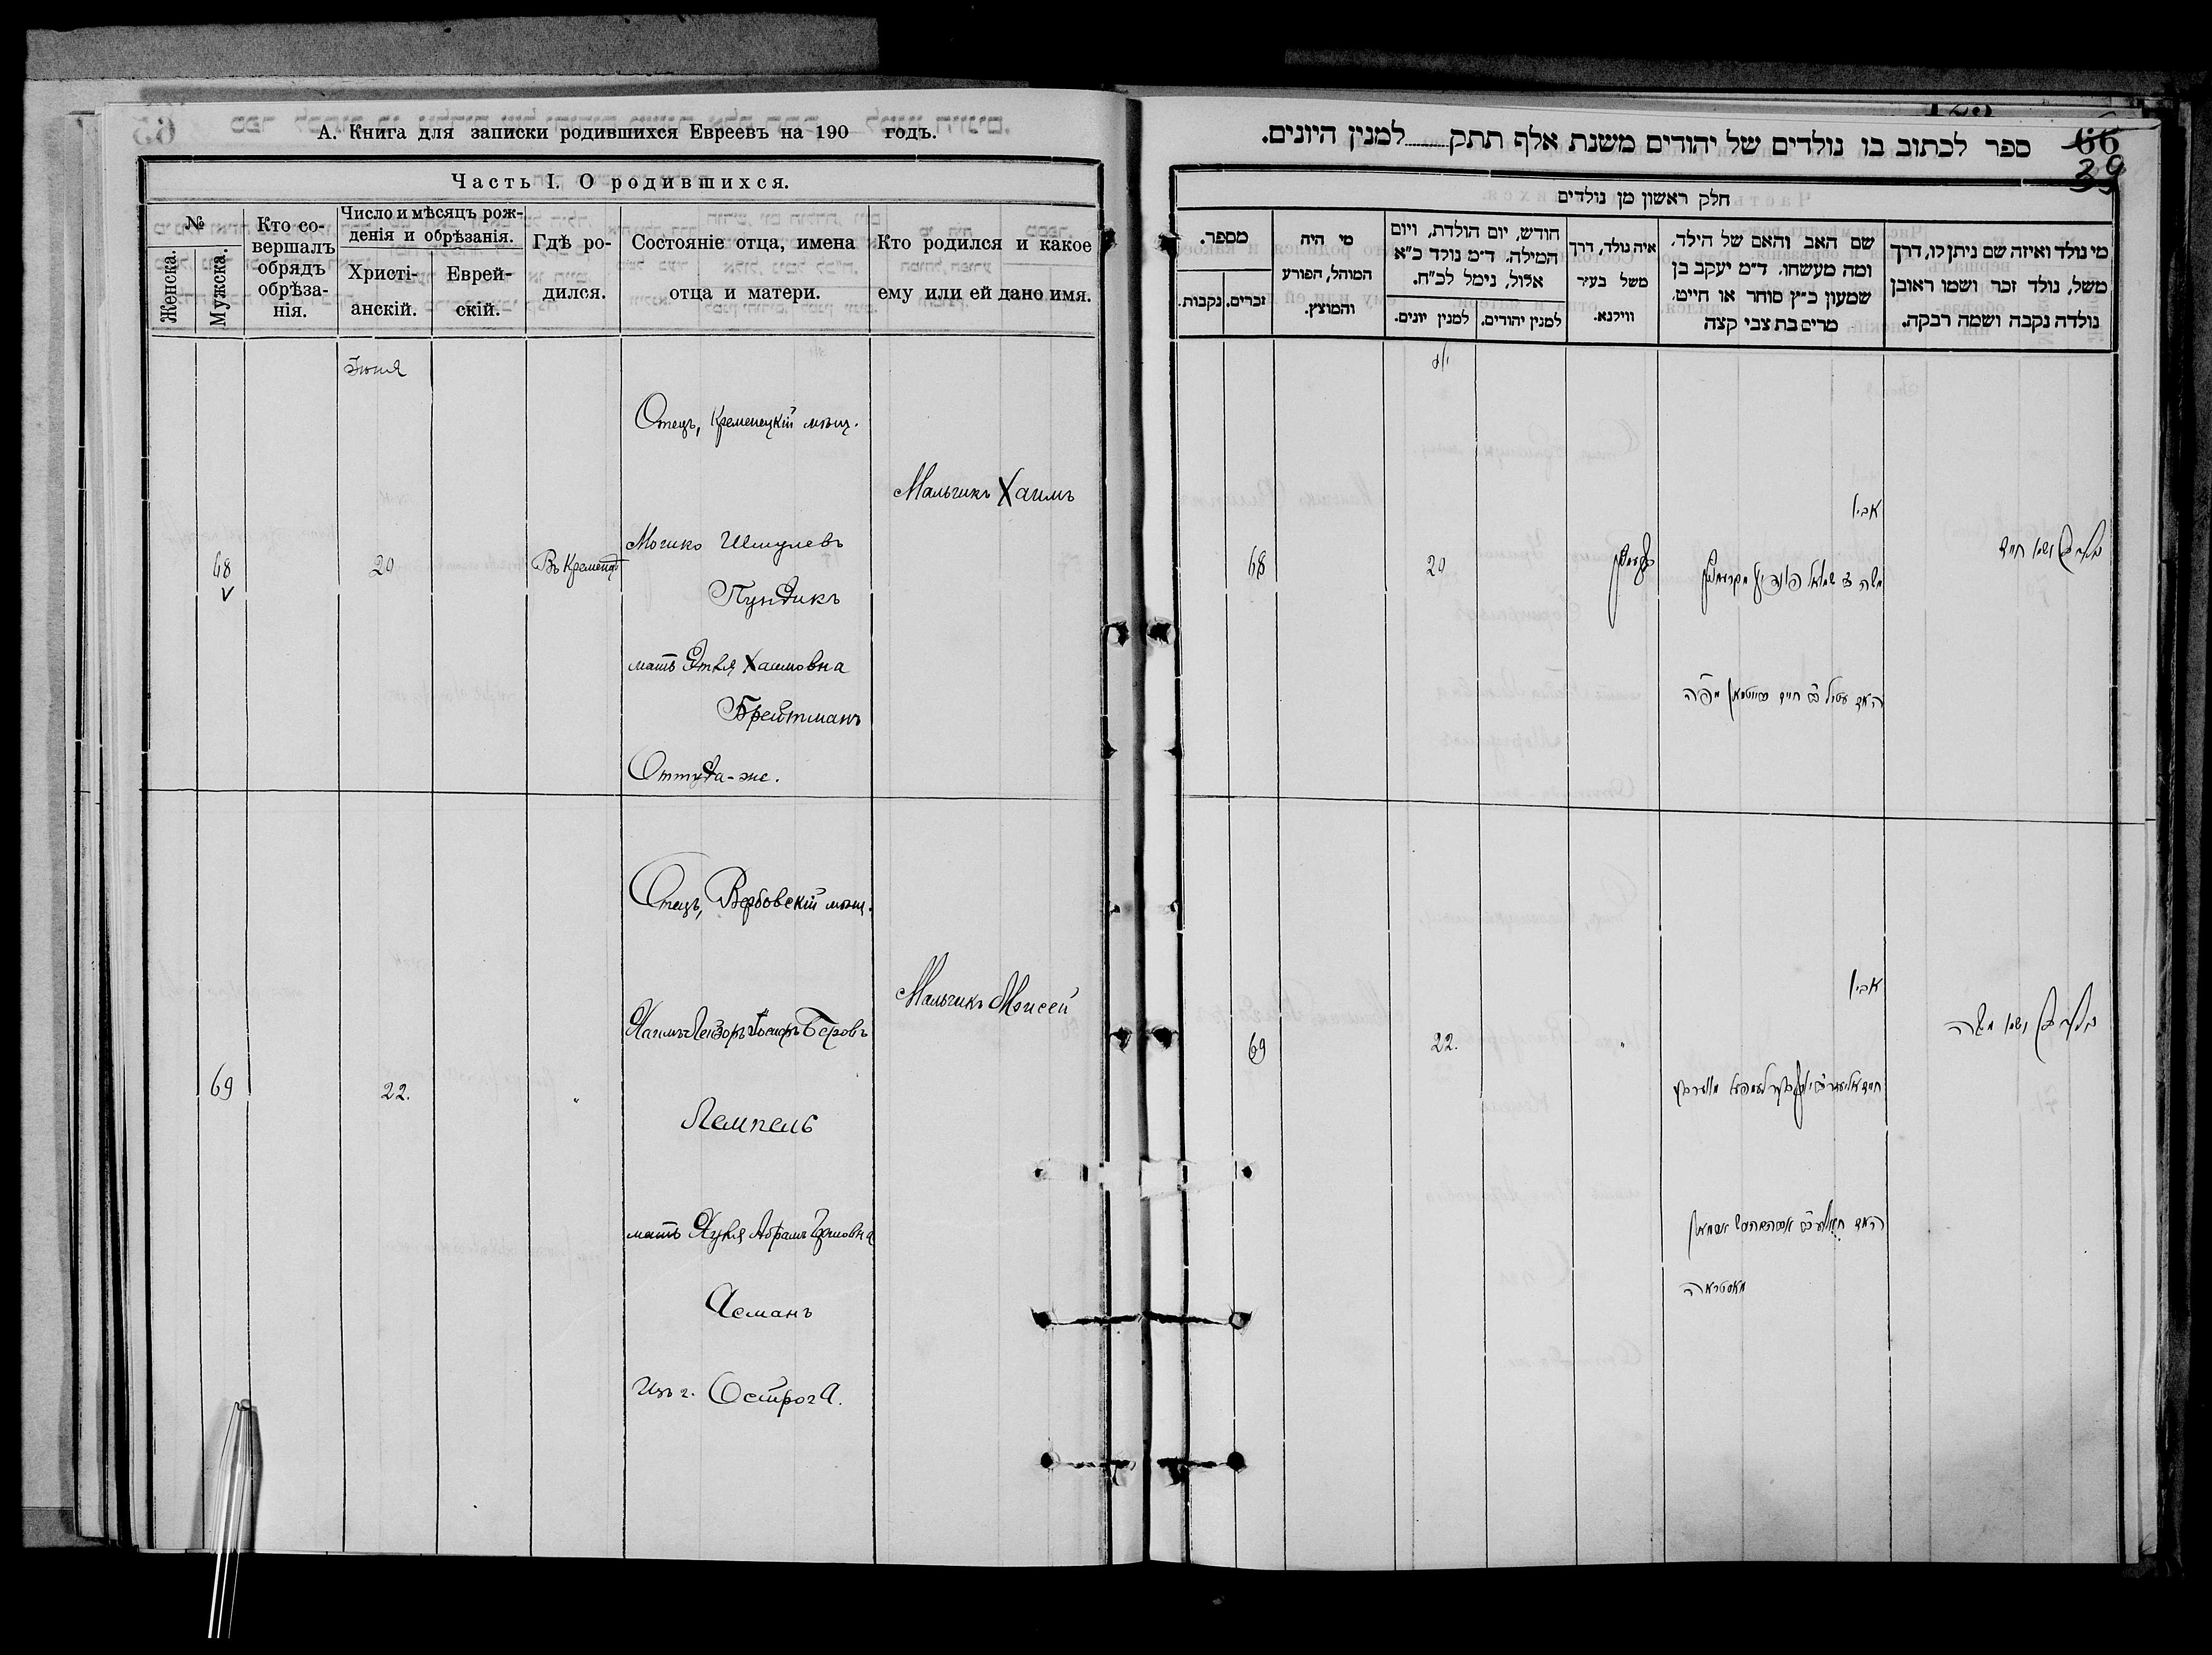 А. Книга для записки родившихся Евреевъ на 190 годъ.
Часть I. О родившихся.
№
Женска.
Мужска.
Кто со-
вершалъ
обрядъ
обрѣза-
нія.
Число и мѣсяцъ рож-
денія и обрѣзанія.
Христі-
анскій.
Еврей-
скій.
Гдѣ ро-
дился.
Состояніе отца, имена
отца и матери.
Кто родился и какое
ему или ей дано имя.
Іюня
68
20
Въ Кременцѣ
Отецъ, Кременецкій мѣщ.
Мошко Шмулевъ
Пундикъ
мать Этля Хаимовна
Брейтманъ
Оттуда-же.
Мальчикъ Хаимъ
69
22.
"
Отецъ, Вербовскій мѣщ.
Хаимъ Лейзоръ Беровъ
Лемпель
мать Абрамъ
Асманъ
Изъ г. Острога.
Мальчикъ Мойсей
66
39
ספר לכתוב בו נולדים של יהודים משנת אלף תתק למנין היונים.
חלק ראשון מן נולדים
מי נולד ואיזה שם ניתן לו, דרך
משל, נולד זכר ושמו ראובן
נולדה נקבה ושמה רבקה.
שם האב והאם של הילד.
ומה מעשהו. ד״מ יעקב בן
שמעון כ״ץ סוחר או חייט.
מרים בת צבי קצה
איה נולד, דרך
משל בעיר
ווילנא.
חודש, יום הולדת, ויום
המילה. ד״מ נולד כ״א
אלול, נימל לכ״ח.
למנין יהודים.
למנין יונים.
מי היה
המוהל, הפורע
והמוצץ.
מספר.
זכרים.
נקבות.
68
20
אביו
משה ב״ש שמואל פונדיק מקרעמניץ
האם עטיל בת חיים ברייטמאן
ושמו חיים
69
22.
"
אביו
חיים אליעזר
האם
מאסטראה
ושמו משה